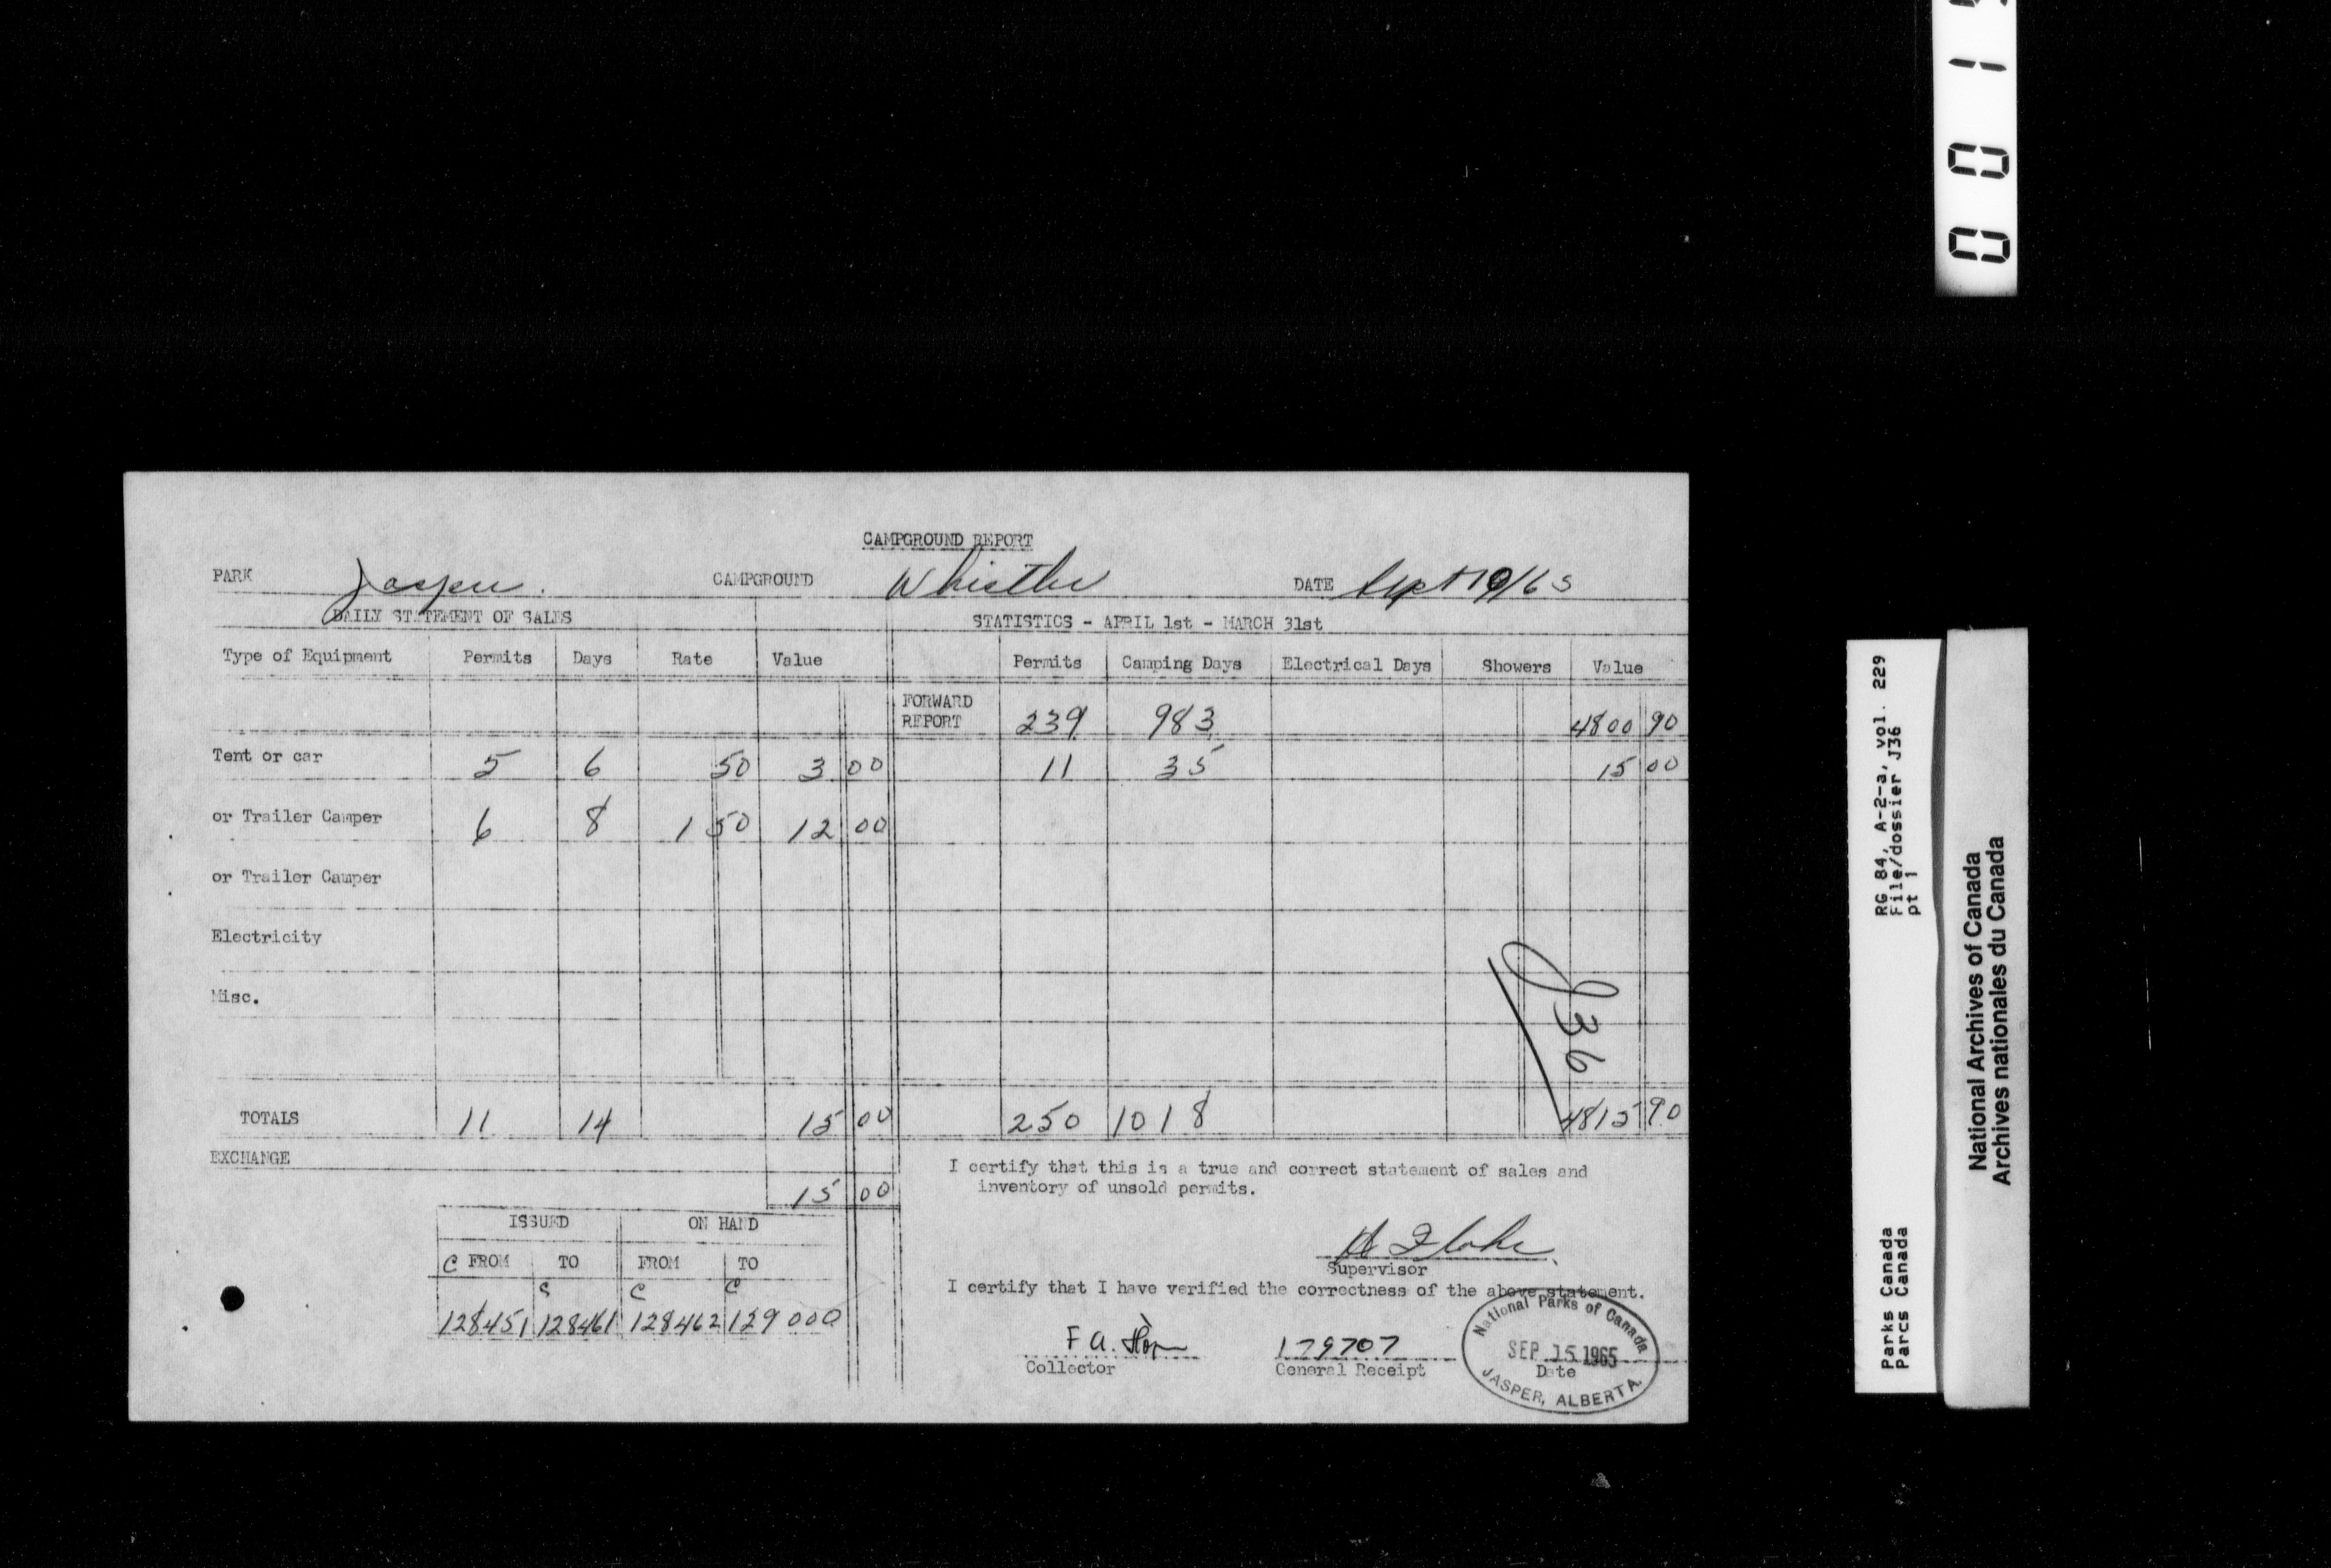 CAMPGROUND REPORT
PARK Jasper. CAMPGROUND Whistler DATE Sept 10/65
DAILY STATEMENT OF SALES STATISTICS - APRIL 1st - MARCH 31st
Type of Equipment Permits Days Rate Value Permits Camping Days Electrical Days Showers Value
FORWARD
REPORT 239 983 4800 90
Tent or car 5 6 50 3 00 11 35 15 00
or Trailer Camper 6 8 1 50 12 00
or Trailer Camper
Electricity
Misc.
J36
TOTALS 11 14 15 00 250 1018 4815 90
EXCHANGE
15 00
I certify that this is a true and correct statement of sales and
inventory of unsold permits.
ISSUED ON HAND
C FROM TO FROM TO
C C C
128451 128461 128462 129000
Supervisor
I certify that I have verified the correctness of the above statement.
F A. 179707
Collector General Receipt Date
National Parks of Canada
SEP 15 1965
JASPER, ALBERTA.
0 0 1
RG 84, A-2-a, vol. 229
File/dossier J36
pt 1
Parks Canada
Parcs Canada
National Archives of Canada
Archives nationales du Canada